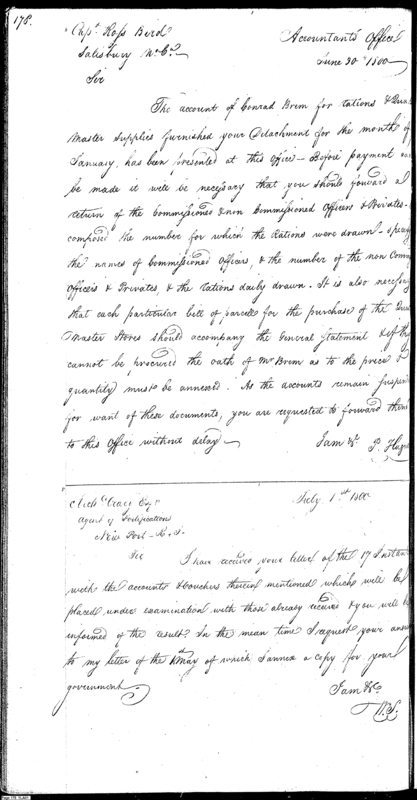 178.
Capt. Ross Bird
Salesbury N. Ca.
Accountants Office
June 30th 1800
Sir
The account of Conrad Brem for rations & Quar
Master Supplies furnished your Detachment for the month of
January, has been presented at this Office — Before payment can
be made it will be necessary that you should forward a
return of the Commissioned & non Commissioned Officers & Privates —
composed the number for which the Rations were drawn — specify
the names of Commissioned Officers, & the number of the non Comm
Officers & Privates, & the rations daily drawn. It is also necessary
that each particular bill of parcels for the purchase of the Quar
Master Stores should accompany the General Statement & if the
cannot be procured the oath of Mr Brem as to the price &
quantity must be annexed. As the accounts remain suspen
for want of these documents, you are requested to forward them
to this Office without delay —
I am &c.
July 1st 1800
Agent of Fortifications
New Port
Sir
I have received your letter of the 17 Instant
with the accounts & vouchers therein mentioned which will be
placed under examination with those already received & you will be
informed of the result. In the mean time I request your answ
to my letter of the May of which I annex a copy for your
government.
I am &c
W. S.